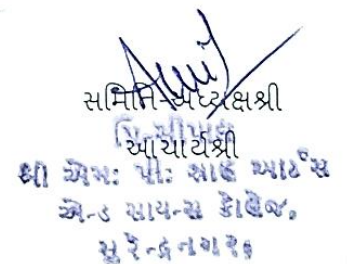 સમિતિ-અધ્યક્ષશ્રી
આચાર્યશ્રી
શ્રી એમ: પી: શાહ આર્ટસ
એન્ડ સાયન્સ કોલેજ,
સુરેન્દ્રનગર,